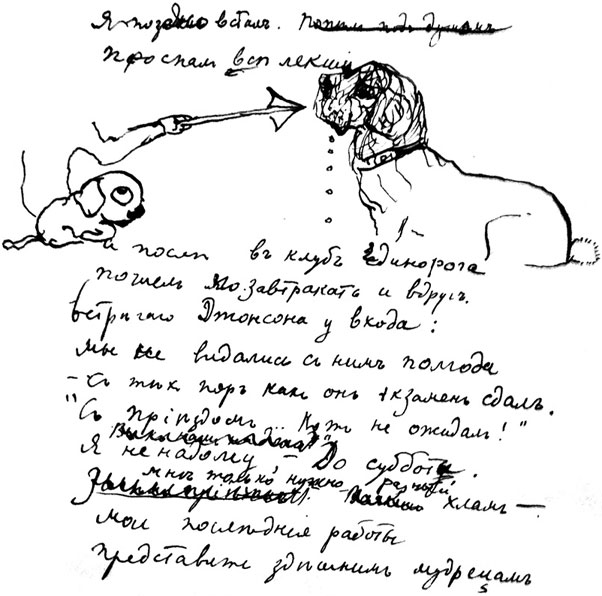 Я поздно всталъ.
проспалъ всѣ лекціи
и послѣ въ клубъ Единорога
пошелъ позавтракать и вдругъ
встрѣчаю Джонсона у входа:
мы не видались съ нимъ полгода
– съ тѣхъ поръ какъ онъ экзаменъ сдалъ.
"Съ пріѣздомъ... Вотъ не ожидалъ!"
Я не надолго – до субботы.
мнѣ только нужно разный
– хламъ –
мои послѣднія работы
представить здѣшнимъ мудрецамъ